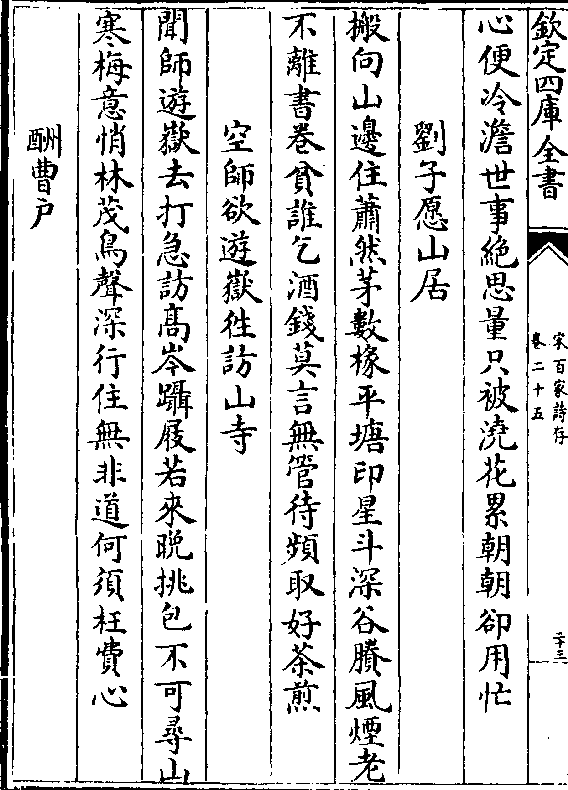 欽定四庫全書
宋百家詩存
卷二十五
二十三
心便冷澹世事絶思量只被澆花累朝朝卻用忙
劉子愿山居
搬向山邊住蕭然茅數椽平塘印星斗深谷賸風煙老
不離書卷貧誰乞酒錢莫言無管待頻取好茶煎
空師欲遊嶽徃訪山寺
聞師遊嶽去打急訪髙岑躡屐若來晩挑包不可尋山
寒梅意悄林茂鳥聲深行住無非道何須枉費心
酬曹户